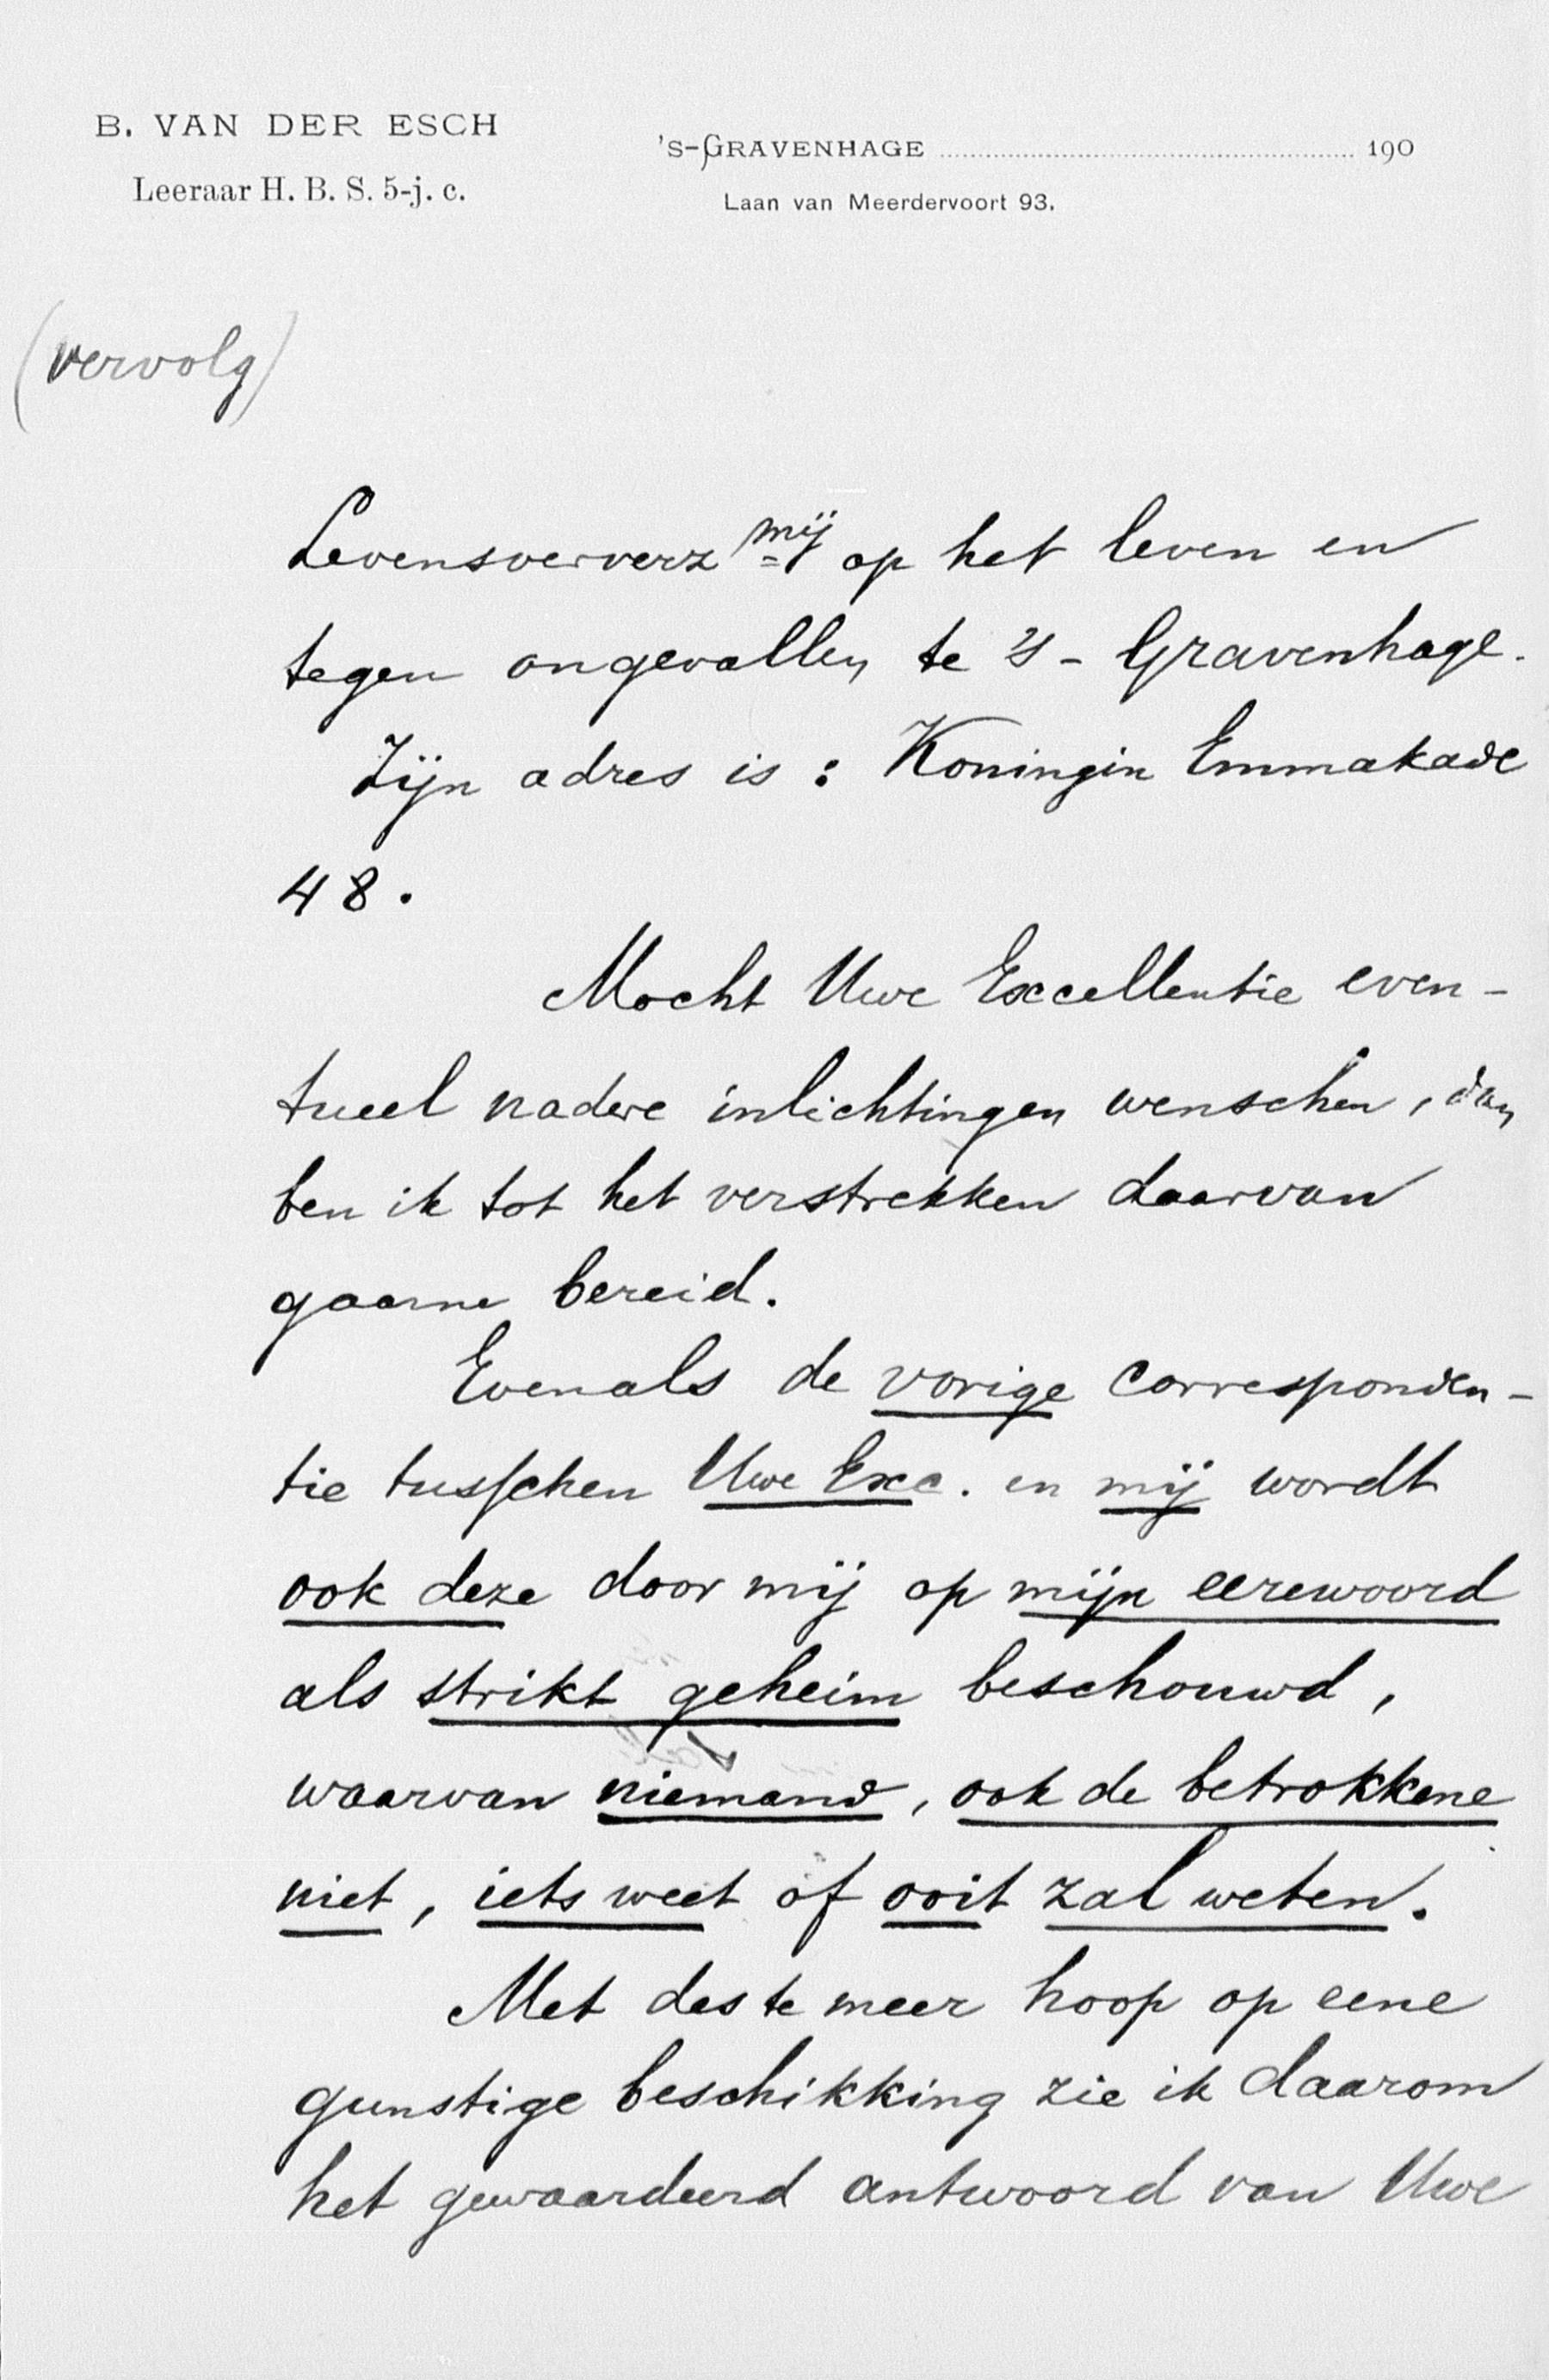 B. VAN DER ESCH
Leeraar H. B. S. 5-j. c.
's-GRAVENHAGE ........ 190
Laan van Meerdervoort 93.
(vervolg)
Levensververz mij op het leven en
tegen ongevallen te 's-Gravenhage.
Zijn adres is : Koningin Emmakade
48.
Mocht Uwe Excellentie even-
tueel nadere inlichtingen wenschen, dan
ben ik tot het verstrekken daarvan
gaarne bereid.
Evenals de vorige corresponden-
tie tusschen Uwe Exc. en mij wordt
ook deze door mij op mijn eerewoord
als strikt geheim beschouwd,
waarvan niemand, ook de betrokkene
niet, iets weet of ooit zal weten.
Met des te meer hoop op eene
gunstige beschikking zie ik daarom
het gewaardeerd antwoord van Uwe